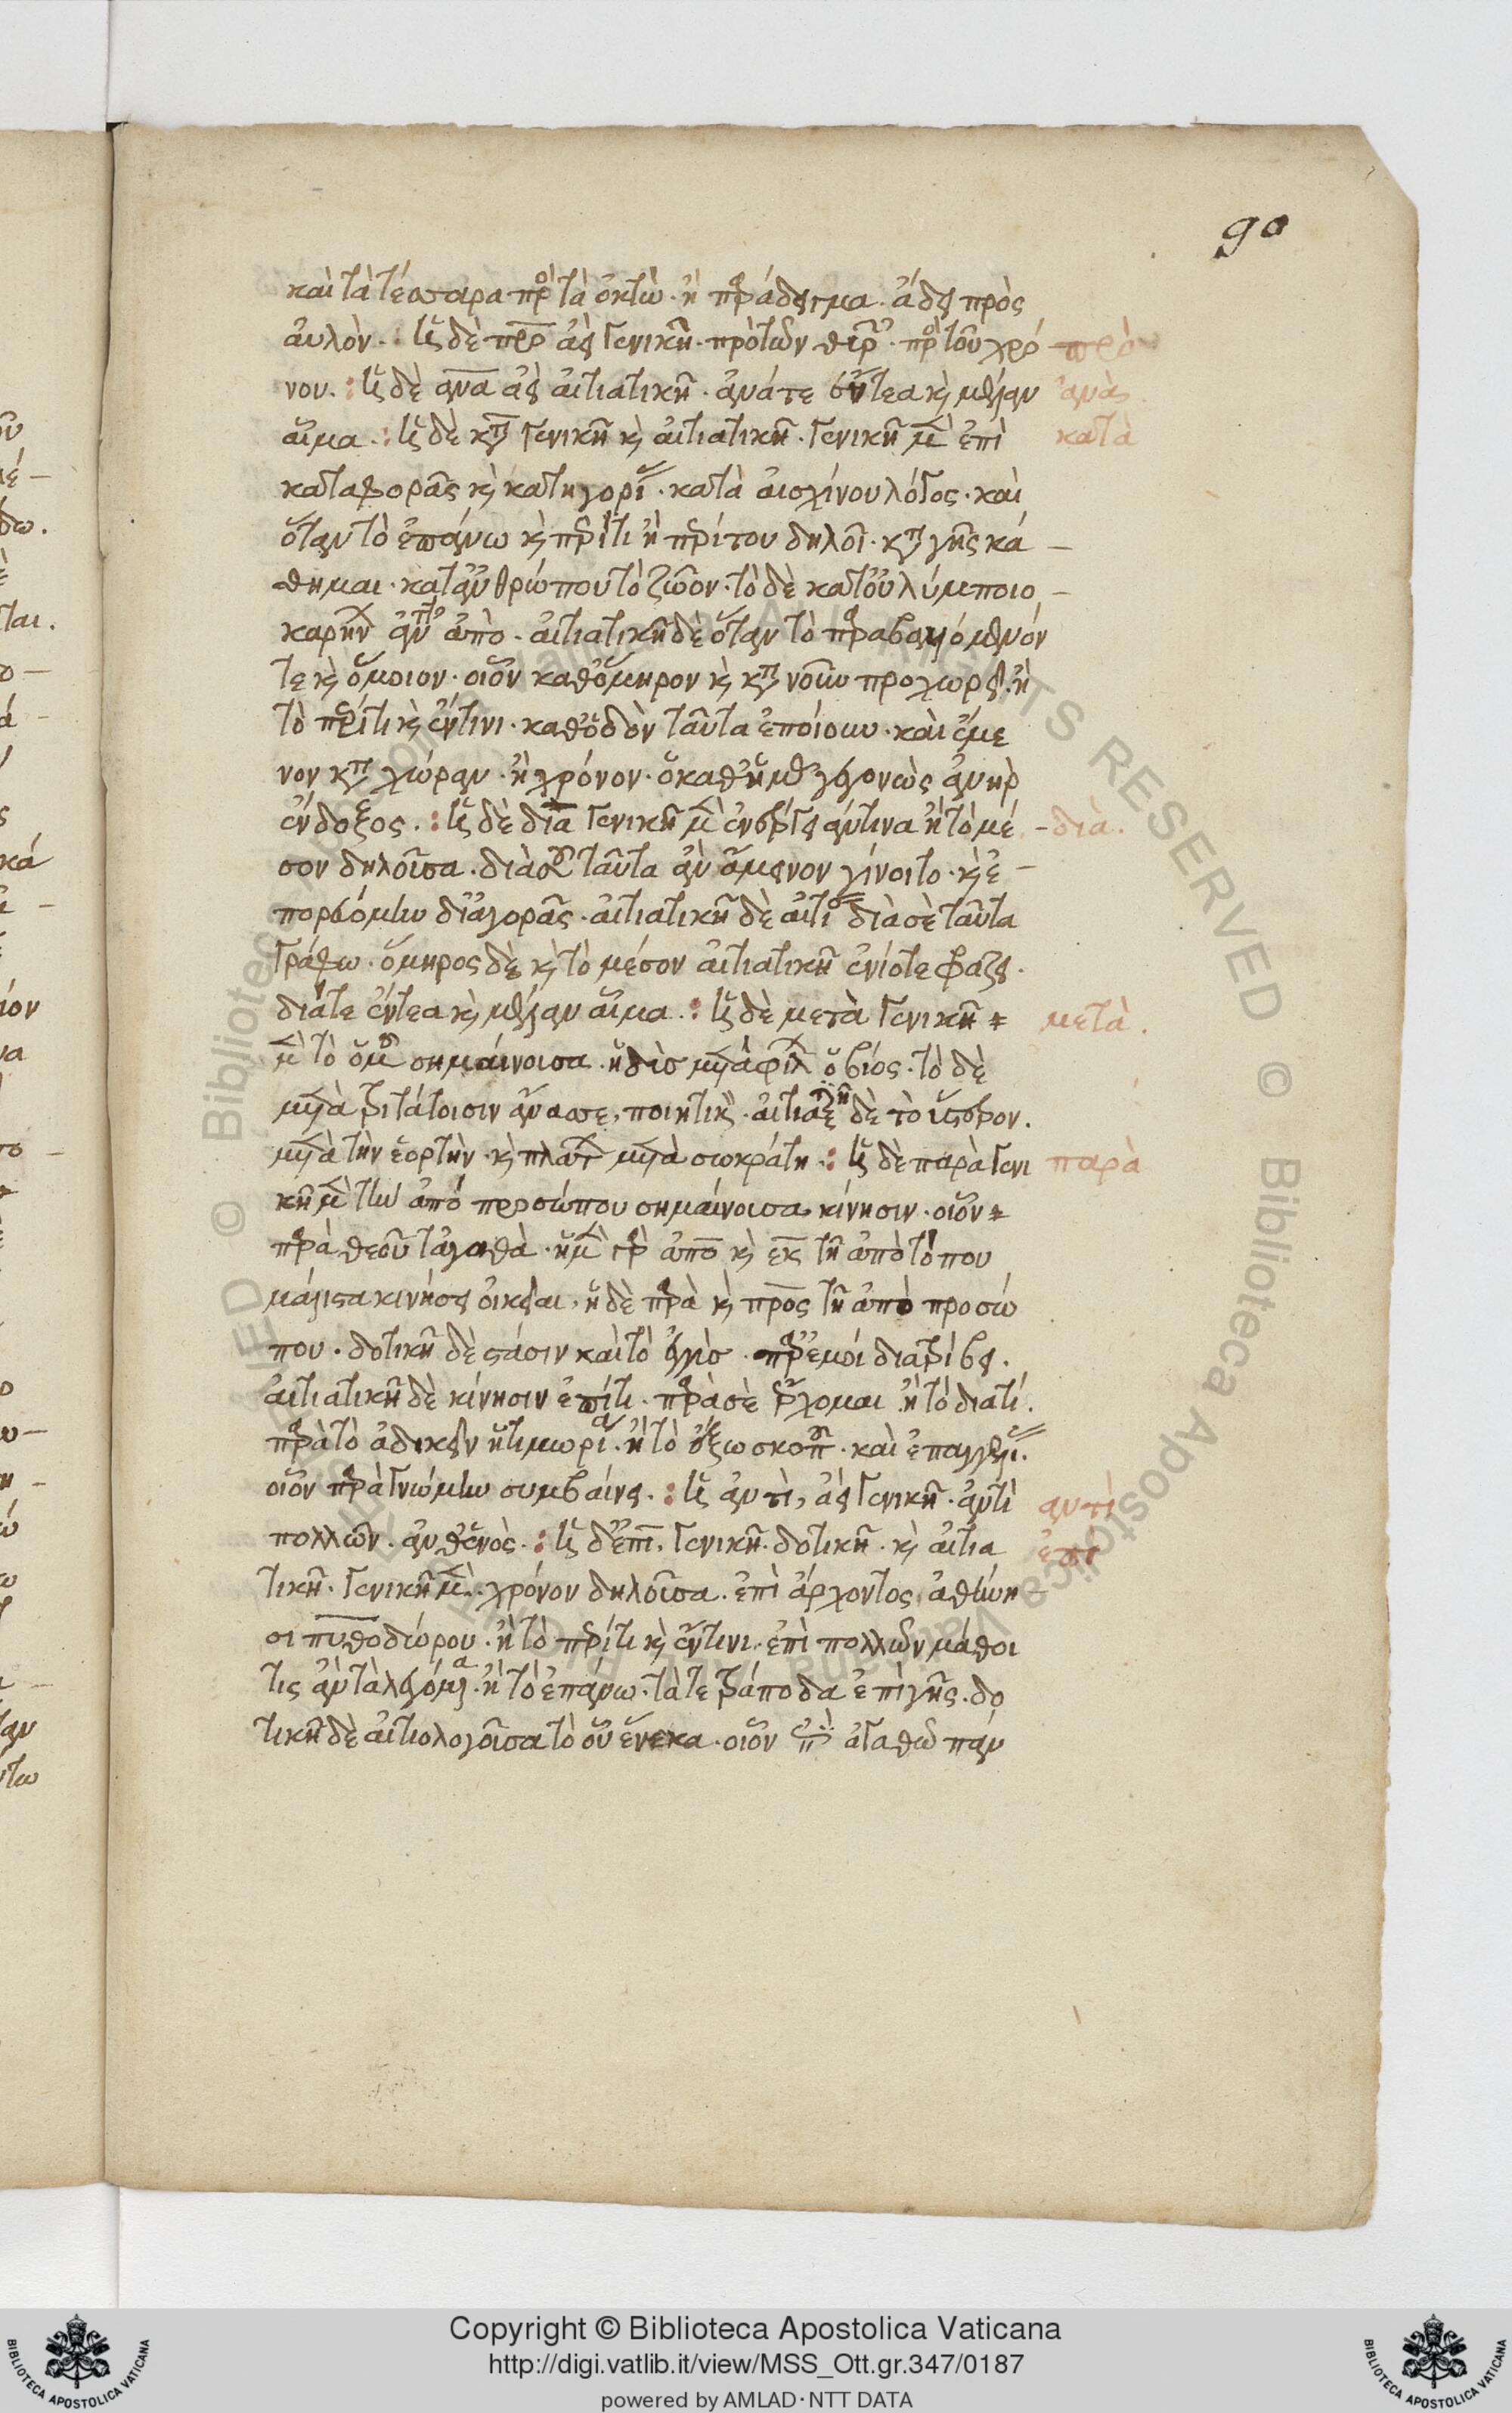 90
καὶ τὰ τέσσαρα πρὸς τὰ ὀκτώ· ἢ παράδειγμα· ἄδει πρὸς
αὐλόν· ἡ δὲ πρὸ ἀεὶ γενικῇ· πρὸ τῶν θυρῶν· πρὸ τοῦ χρό πρὸ
νου: ἡ δὲ ἀνὰ ἀεὶ αἰτιατικῇ· ἀνά τε ἔντεα καὶ μέλαν ἀνὰ
αἷμα: ἡ δὲ κατὰ γενικῇ καὶ αἰτιατικῇ· γενικῇ μὲν ἐπὶ κατὰ
καταφορᾶς καὶ κατηγορίας· κατὰ αἰσχίνου λόγος· καὶ
ὅταν τὸ ἐπάνω καὶ περί τι ἢ περί του δηλοῖ· κατὰ γῆς κά
θημαι· κατ' ἀνθρώπου τὸ ζῶον· τὸ δὲ κατ' οὐλύμποιο
καρήνων ἀντὶ ἀπὸ· αἰτιατικῇ δὲ ὅταν τὸ παραβαλλόμενόν
τε καὶ ὅμοιον· οἷον καθ' ὅμηρον καὶ κατὰ νοῦν προχωρεῖ· ἢ
τὸ περί τι καὶ ἔν τινι· καθ' ὁδὸν ταῦτα ἐποίουν· καὶ ἔμε
νον κατὰ χώραν· ἢ χρόνον· ὁ καθ' ἡμᾶς γεγονὼς ἀνὴρ
ἔνδοξος: ἡ δὲ διὰ γενικῇ μὲν ἐνέργειάν τινα ἢ τὸ μέ διὰ
σον δηλοῦσα· διὰ σοῦ ταῦτα ἂν ἄμεινον γίνοιτο· καὶ ἐ
πορευόμην δι' ἀγορᾶς· αἰτιατικῇ δὲ αἰτίαν διὰ σὲ ταῦτα
γράφω· ὅμηρος δὲ καὶ τὸ μέσον αἰτιατικῇ ἐνίοτε φράζει·
διά τε ἔντεα καὶ μέλαν αἷμα: ἡ δὲ μετὰ γενικῇ μετὰ
μὲν τὸ ὁμοῦ σημαίνουσα· ἡδὺς μετὰ φίλων ὁ βίος· τὸ δὲ
μετὰ τριτάτοισιν ἄνασσε, ποιητικὸν· αἰτιατικῇ δὲ τὸ ὕστερον·
μετὰ τὴν ἑορτὴν· καὶ πλάτων μετὰ σωκράτη: ἡ δὲ παρὰ γενι παρὰ
κῇ μὲν τὴν ἀπὸ προσώπου σημαίνουσα κίνησιν· οἷον
παρὰ θεοῦ τἀγαθὰ· ἡ μὲν γὰρ ἀπὸ καὶ ἐκ τῇ ἀπὸ τόπου
μάλιστα κινήσει οἰκεῖαι, ἡ δὲ παρὰ καὶ πρὸς τῇ ἀπὸ προσώ
που· δοτικῇ δὲ στάσιν καὶ τὸ ἐγγὺς· παρ' ἐμοὶ διατρίβει·
αἰτιατικῇ δὲ κίνησιν ἐπί τι· παρὰ σὲ ἔρχομαι ἢ τὸ διατί·
παρὰ τὸ ἀδικεῖν ἡ τιμωρία· ἢ τὸ ἔξω σκοποῦ· καὶ ἐπαγγελίας
οἷον παρὰ γνώμην συμβαίνει: ἡ ἀντὶ, ἀεὶ γενικῇ· ἀντὶ ἀντὶ
πολλῶν· ἀνθ' ἑνὸς: ἡ δ' ἐπὶ, γενικῇ· δοτικῇ· καὶ αἰτια ἐπὶ
τικῇ· γενικῇ μὲν· χρόνον δηλοῦσα· ἐπὶ ἄρχοντος ἀθήνη
σι πυθοδώρου· ἢ τὸ περί τι καὶ ἔν τινι· ἐπὶ πολλῶν μάθοι
τις ἂν τὰ λεγόμενα· ἢ τὸ ἐπάνω· τὰ τετράποδα ἐπὶ γῆς· δο
τικῇ δὲ αἰτιολογοῦσα τὸ οὗ ἕνεκα· οἷον ἐπὶ ἀγαθῷ πάν
Copyright © Biblioteca Apostolica Vaticana
http://digi.vatlib.it/view/MSS_Ott.gr.347/0187
powered by AMLAD·NTT DATA